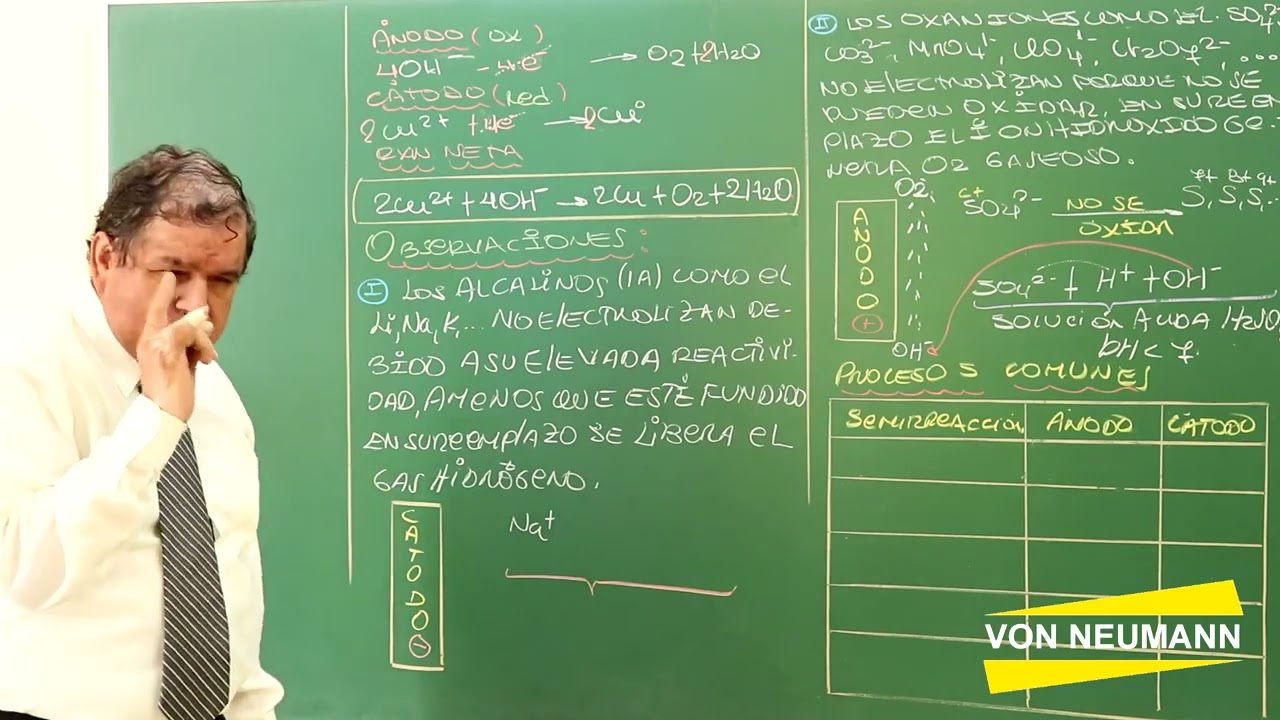 ÁNODO (OX)
4OH⁻ - 4e⁻ → O2 + 2H2O
CÁTODO (red)
2Cu²⁺ + 4e⁻ → 2Cu°
RXN NETA
2Cu²⁺ + 4OH⁻ → 2Cu + O2 + 2H2O
OBSERVACIONES:
I LOS ALCALINOS (IA) COMO EL
Li, Na, K, ... NO ELECTROLIZAN DE-
BIDO A SU ELEVADA REACTIVI-
DAD, A MENOS QUE ESTÉ FUNDIDO
EN SU REEMPLAZO SE LIBERA EL
GAS HIDRÓGENO.
CATODO
-
Na⁺
II LOS OXANIONES COMO EL SO4²⁻
CO3²⁻, MnO4¹⁻, ClO4¹⁻, Cr2O7²⁻, ...
NO ELECTROLIZAN PORQUE NO SE
PUEDEN OXIDAR, EN SU REEM
PLAZO EL ION HIDROXIDO GE-
NERA O2 GASEOSO.
ANODO
+
O2
OH⁻
SO4²⁻ NO SE
OXIDA
S, S, S, ..
SO4²⁻ + H⁺ + OH⁻
SOLUCIÓN ACIDA
pH < 7
PROCESOS COMUNES
SEMIRREACCIÓN ÁNODO CÁTODO
VON NEUMANN